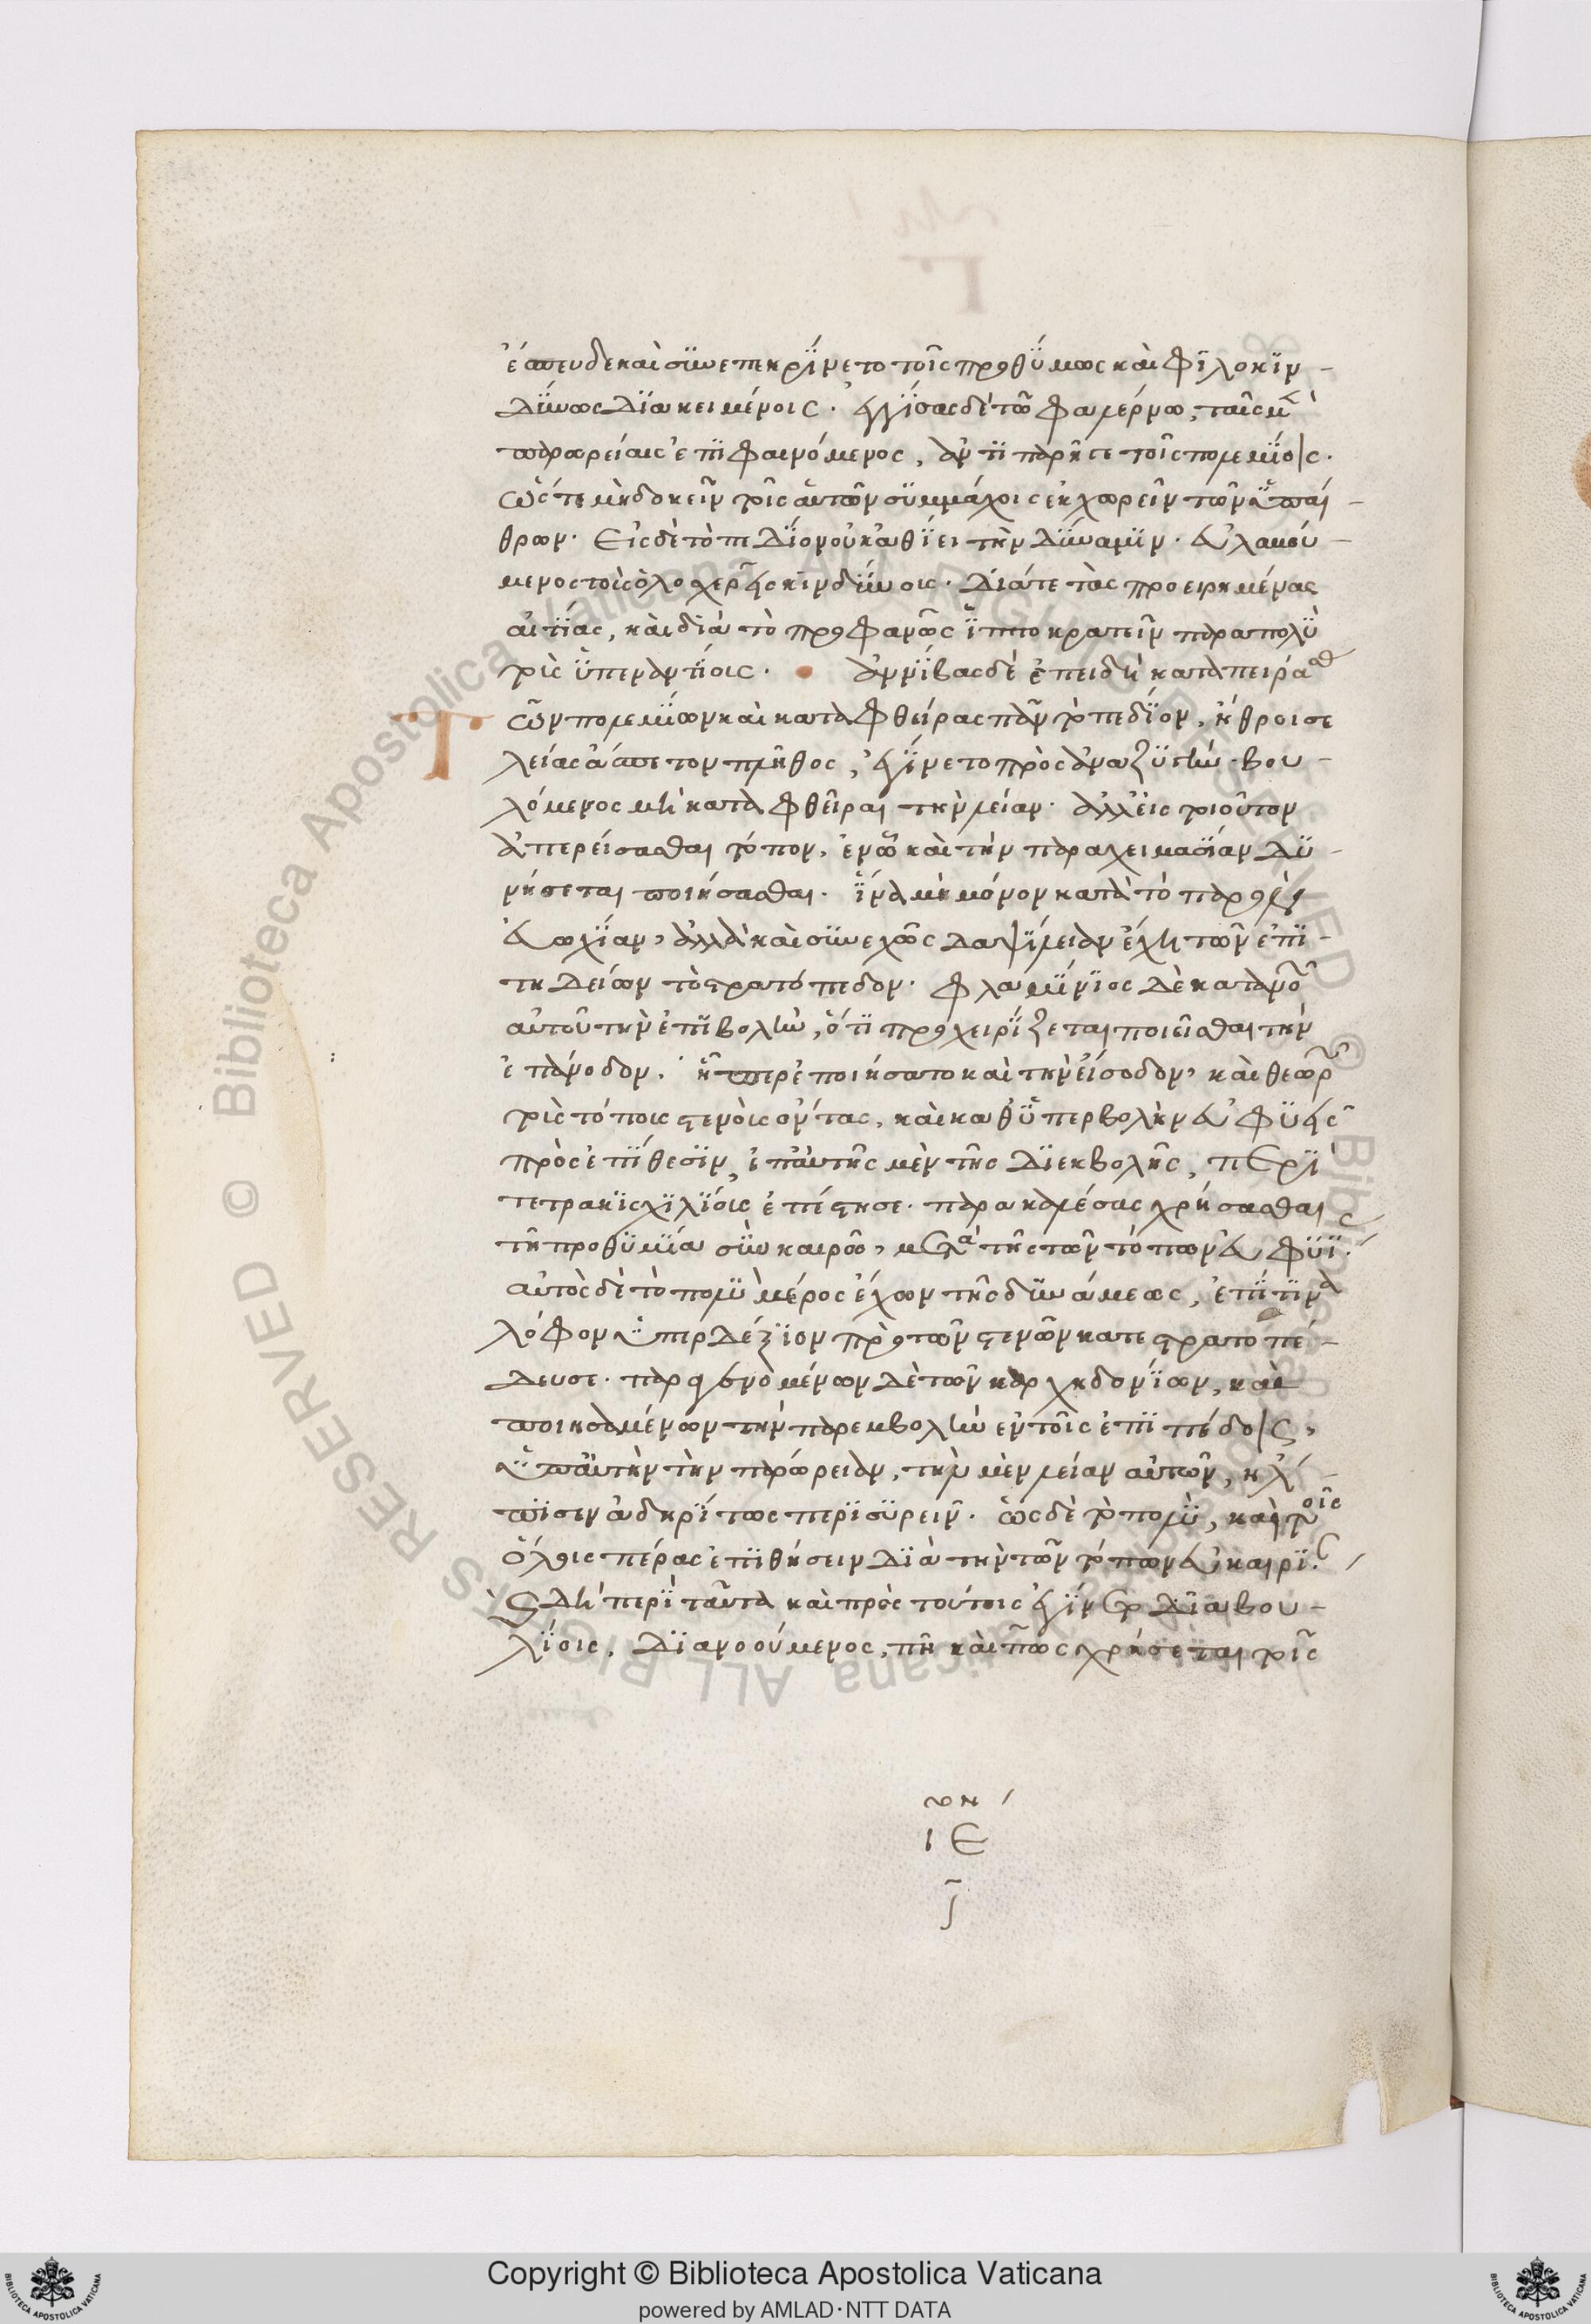 ἔσπευδε καὶ συνεπεκρίνετο τοῖς προθύμως καὶ φιλοκιν-
δύνως διακειμένοις. ἐγγίσας δὲ τῶ φαλέρνω, ταῖς μὲν
παρωρείαις ἐπιφαινόμενος, ἀντιπαρῆγε τοῖς πολεμίοις.
ὥστε μὴ δοκεῖν τοῖς αὐτῶν συμμάχοις ἐκχωρεῖν τῶν ὑπαί-
θρων. Εἰς δὲ τὸ πεδίον οὐ καθίει τὴν δύναμιν. εὐλαβού-
μενος τοὺς ὁλοσχερεῖς κινδύνοις. διά τε τὰς προειρημένας
αἰτίας, καὶ διὰ τὸ προφανῶς ἱπποκρατεῖν παραπολὺ
τοὺς ὑπεναντίοις. ἀννίβας δὲ ἐπειδὴ καταπειράσας
Τῶν πολεμίων καὶ καταφθείρας πᾶν τὸ πεδίον, ἤθροισε
λείας ἄπλετον πλῆθος, ἐγίνετο πρὸς ἀναζυγὴν. βου-
λόμενος μὴ καταφθεῖραι τὴν λείαν. ἀλλ' εἰς τοιοῦτον
ἀπερείσασθαι τόπον, ἐν ᾧ καὶ τὴν παραχειμασίαν δυ-
νήσεται ποιήσασθαι. ἵνα μὴ μόνον κατὰ τὸ παρὸν
εὐωχίαν, ἀλλὰ καὶ συνεχῶς δαψίλειαν ἔχη τῶν ἐπι-
τηδείων τὸ στρατόπεδον. Φλαμίνιος δὲ κατανοῶν
αὐτοῦ τὴν ἐπιβολὴν, ὅτι προχειρίζεται ποιεῖσθαι τὴν
ἐπάνοδον. ᾗπερ ἐποιήσατο καὶ τὴν εἴσοδον, καὶ θεωρῶν
τοὺς τόποις στενοὺς ὄντας, καὶ καθ' ὑπερβολὴν εὐφυεῖς
πρὸς ἐπίθεσιν, ἐπ' αὐτῆς μὲν τῆς διεκβολῆς, περὶ
τετρακισχιλίοις ἐπέστησε. παρακαλέσας χρήσασθαι
τῆ προθυμία σὺν καιρῶ, μετὰ τῆς τῶν τόπων εὐφυΐας.
αὐτὸς δὲ τὸ πολὺ μέρος ἔχων τῆς δυνάμεως, ἐπί τινα
λόφον ὑπερδέξιον πρὸ τῶν στενῶν κατεστρατοπέ-
δευσε. παραγενομένων δὲ τῶν καρχηδονίων, καὶ
ποιησαμένων τὴν παρεμβολὴν ἐν τοῖς ἐπιπέδοις,
ὑπ' αὐτὴν τὴν παρώρειαν, τὴν μὲν λείαν αὐτῶν, ἤλ-
πισεν ἀδηρίτως περισύρειν. ὡς δὲ τὸ πολὺ, καὶ τοῖς
ὅλοις πέρας ἐπιθήσειν διὰ τὴν τῶν τόπων εὐκαιρίαν.
Καὶ δὴ περὶ ταῦτα καὶ πρὸς τούτοις ἐγίνετο διαβου-
λίοις. διανοούμενος, πῆ καὶ πῶς χρήσεται τοῖς
ιε